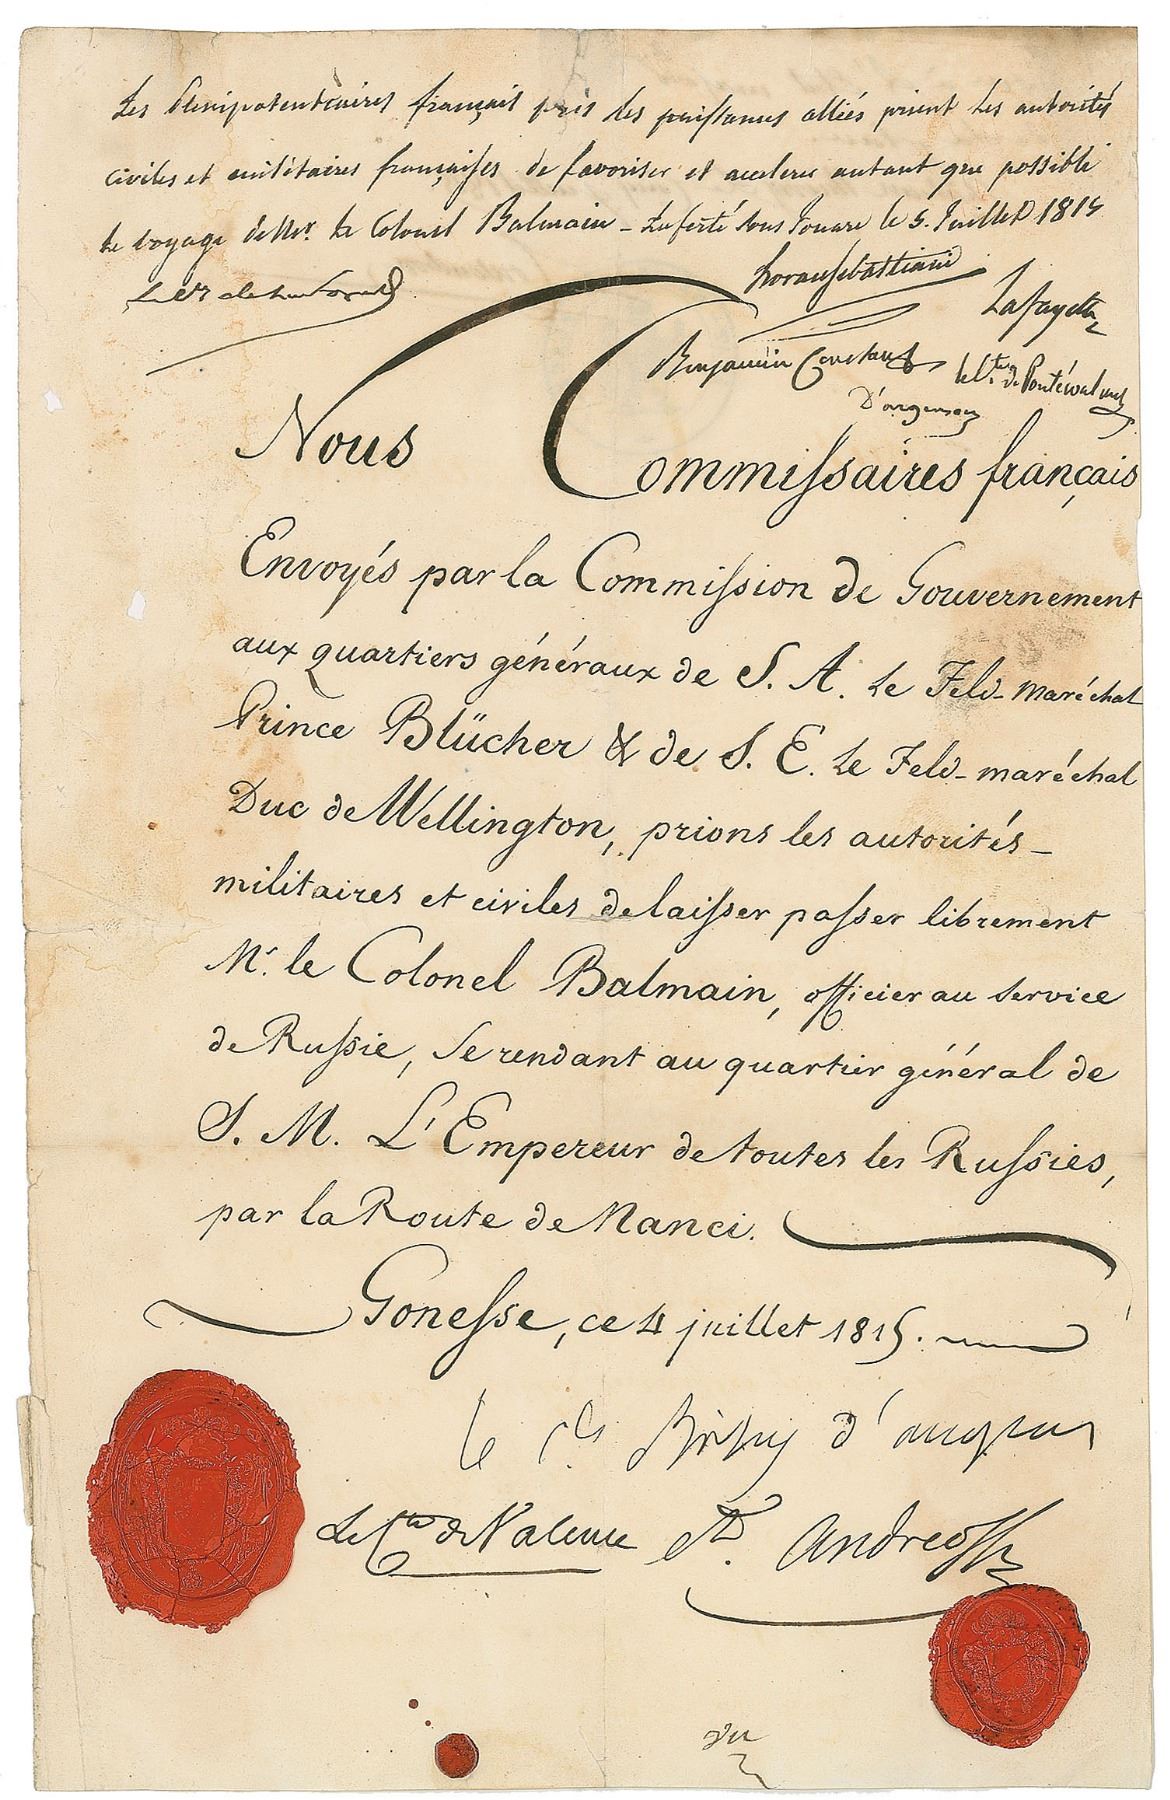 Les plenipotentiaires français près les puissances alliés prient les autorités
civiles et militaires françaises de favoriser et accelerer autant que possible
le voyage de Mr. le Colonel Balmain – La ferté sous Jouare le 5. Juillet 1815
horace Sebastiani
Lafayette
Benjamin Constant
le Cte. de Pontécoulant
D'argenson
Nous Commissaires français
Envoyés par la Commission de Gouvernement
aux quartiers généraux de S. A. le Feld-maréchal
Prince Blücher & de S. E. le Feld-maréchal
Duc de Wellington, prions les autorités –
militaires et civiles de laisser passer librement
Mr. le Colonel Balmain, officier au service
de Russie, se rendant au quartier général de
S. M. L'Empereur de toutes les Russies,
par la Route de Nanci.
Gonesse, ce 4 juillet 1815.
le Cte Boissy d'anglas
Le Cte de Valence
Ct. Andreossy